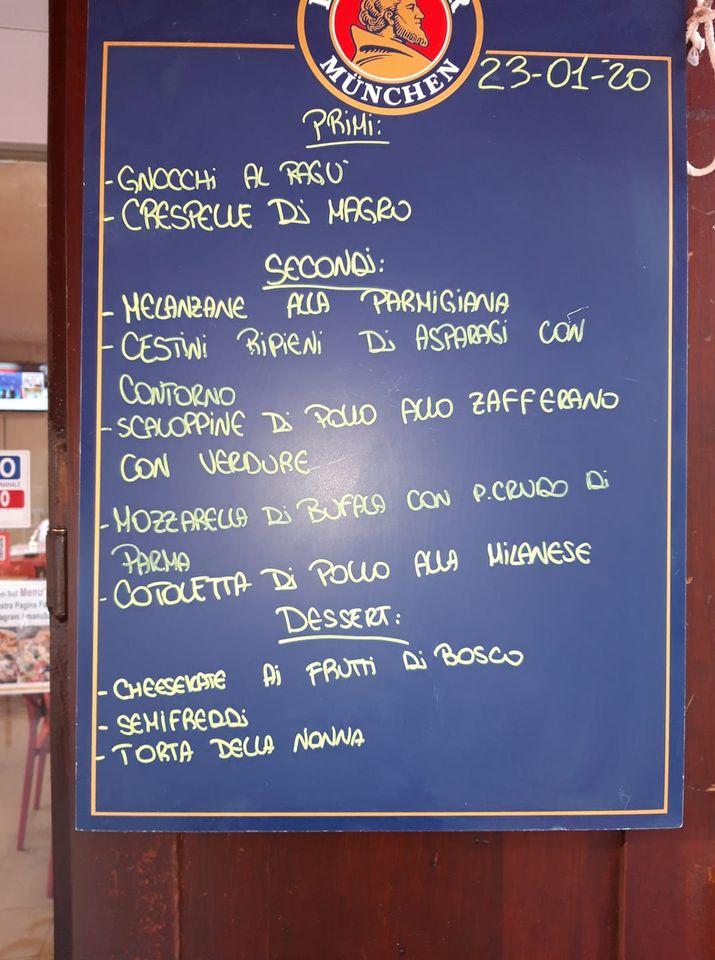 MÜNCHEN
23-01-20
PRIMI:
- GNOCCHI AL RAGU'
- CRESPELLE DI MAGRO
SECONDI:
- MELANZANE ALLA PARMIGIANA
- CESTINI RIPIENI DI ASPARAGI CON
CONTORNO
- SCALOPPINE DI POLLO ALLO ZAFFERANO
CON VERDURE
- MOZZARELLA DI BUFALA CON P.CRUDO DI
PARMA
- COTOLETTA DI POLLO ALLA MILANESE
DESSERT:
- CHEESEKATE AI FRUTTI DI BOSCO
- SEMIFREDDI
- TORTA DELLA NONNA
O
MANALE
0
Sul Menu'
stra Pagina
agram /-manub